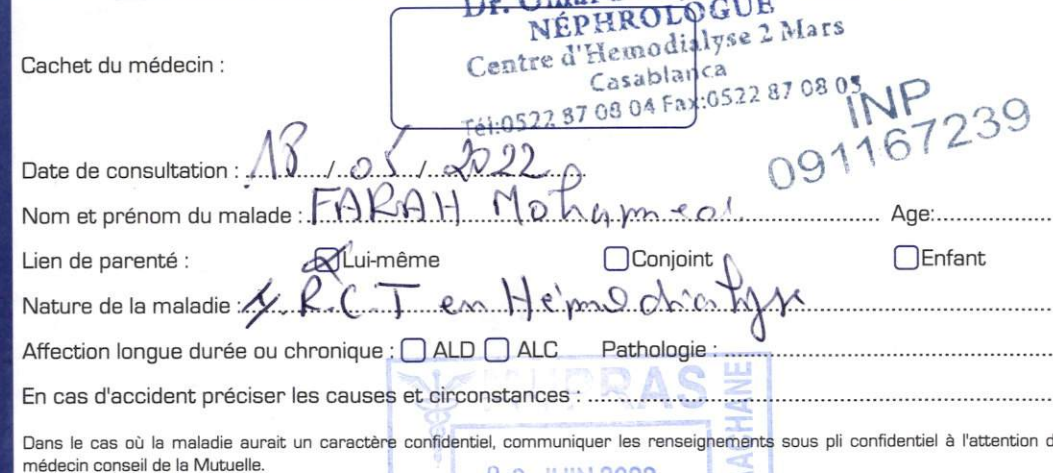 Dr.
NÉPHROLOGUE
Centre d'Hemodialyse 2 Mars
Casablanca
Tél:0522 87 08 04 Fax:0522 87 08 05
INP
091167239
Cachet du médecin :
Date de consultation : 18/05/2022
Nom et prénom du malade : FARAH Mohamed Age:
Lien de parenté : Lui-même Conjoint Enfant
Nature de la maladie : I.R.C.T en Hémodialyse
Affection longue durée ou chronique : ALD ALC Pathologie :
En cas d'accident préciser les causes et circonstances :
Dans le cas où la maladie aurait un caractère confidentiel, communiquer les renseignements sous pli confidentiel à l'attention d
médecin conseil de la Mutuelle.